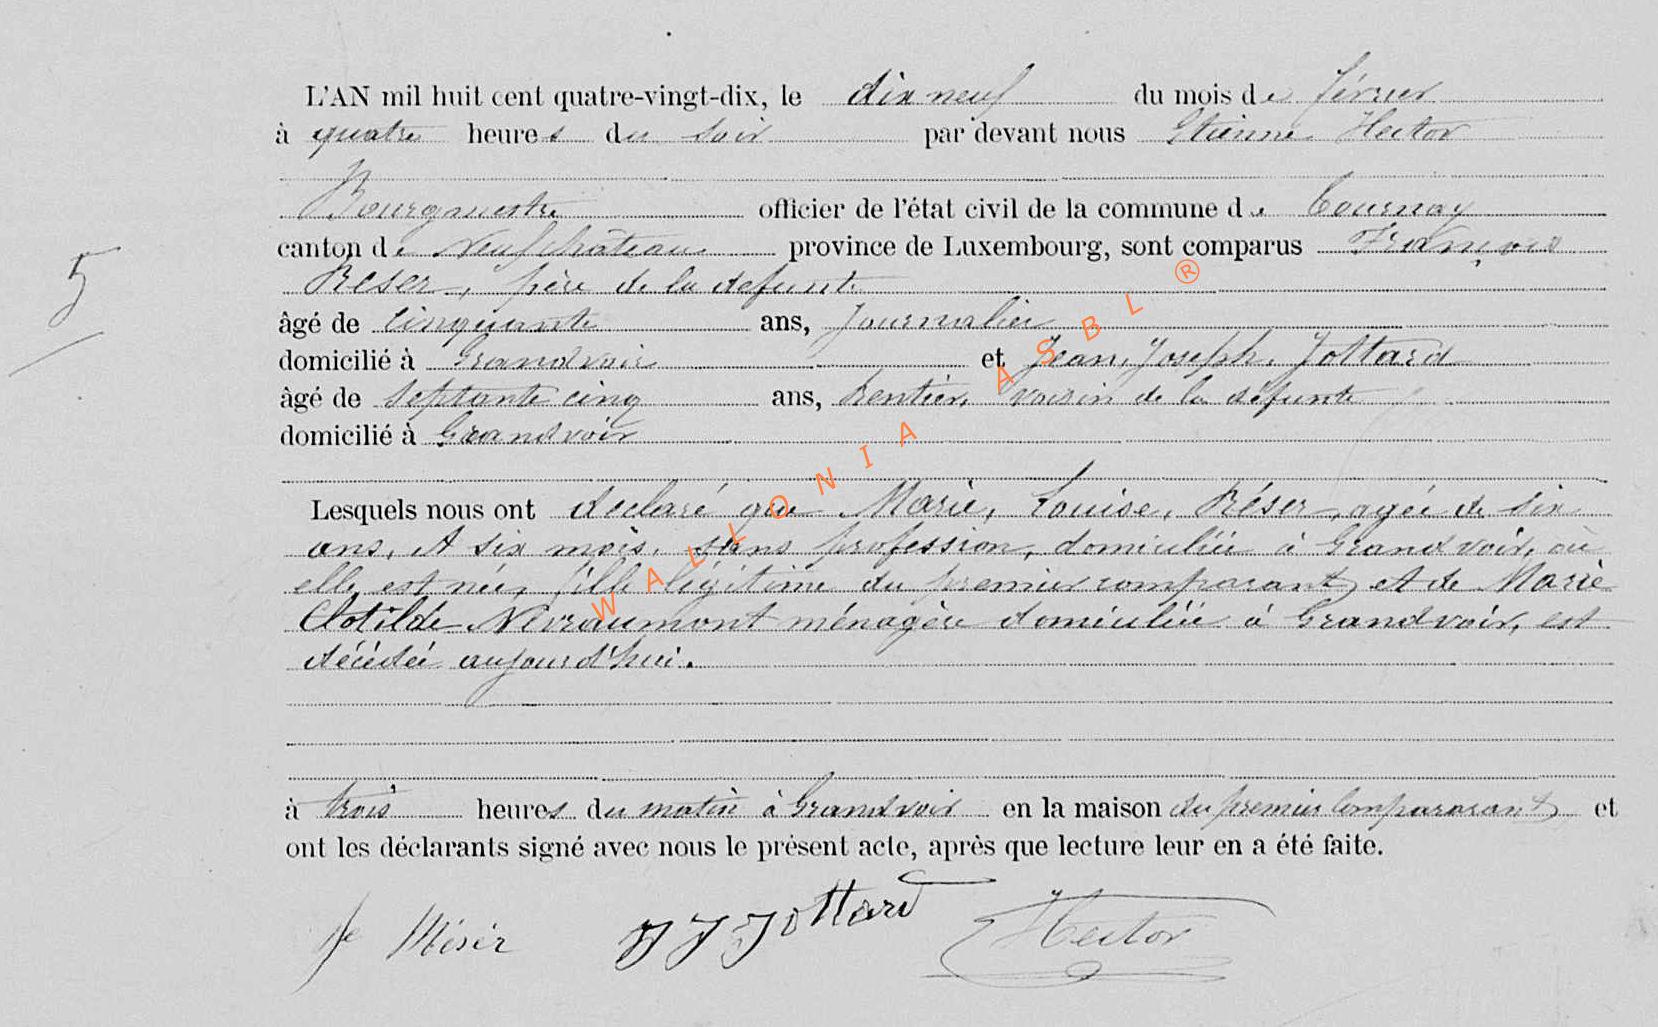 L'AN mil huit cent quatre-vingt-dix, le dix neuf du mois de février
à quatre heures du soir par devant nous Etienne Hector
Bourgmestre officier de l'état civil de la commune de Tournay
canton de Neufchâteau province de Luxembourg, sont comparus François
Réser, père de la défunte
âgé de cinquante ans, Journalier
domicilié à Grandvoir et Jean, Joseph, Jottard
âgé de septante cinq ans, Rentier, voisin de la défunte
domicilié à Grandvoir
5
Lesquels nous ont déclaré que Marie, Louise, Réser, agée de six
ans, et six mois, sans profession, domiciliée à Grandvoir, où
elle est née, fille légitime du premier comparant et de Marie
Clotilde Nevraumont ménagère domiciliée à Grandvoir, est
décédée aujourd'hui.
à trois heures du matin à Grandvoir en la maison du premier Comparant et
ont les déclarants signé avec nous le présent acte, après que lecture leur en a été faite.
J J Jottard Hector
WALLONIA ASBL ®